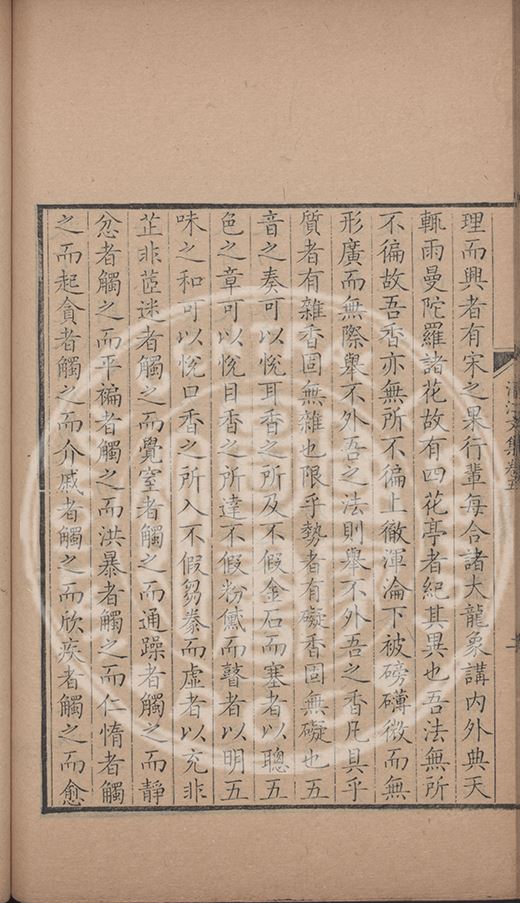 理而興者有宋之果行輩每合諸大龍象講內外典天
輒雨曼陀羅諸花故有四花亭者紀其異也吾法無所
不徧故吾香亦無所不徧上徹渾淪下被磅礴微而無
形廣而無際舉不外吾之法則舉不外吾之香凡具乎
質者有雜香固無雜也限乎勢者有礙香固無礙也五
音之奏可以悅耳香之所及不假金石而塞者以聰五
色之章可以悅目香之所達不假粉黛而瞽者以明五
味之和可以悅口香之所入不假芻豢而虛者以充非
芷非茝迷者觸之而覺窒者觸之而通躁者觸之而靜
忿者觸之而平褊者觸之而洪暴者觸之而仁惰者觸
之而起貪者觸之而介戚者觸之而欣疾者觸之而愈